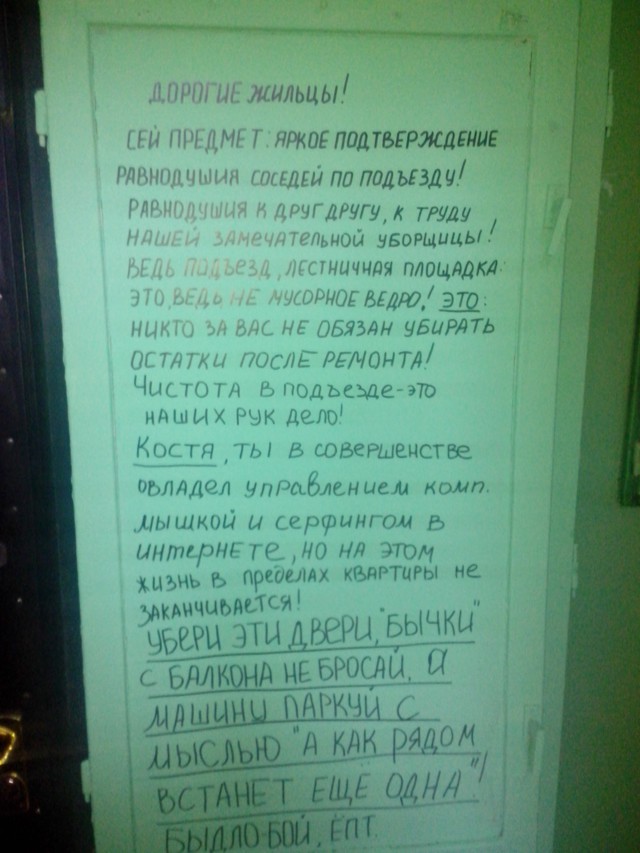 ДОРОГИЕ ЖИЛЬЦЫ!
СЕЙ ПРЕДМЕТ: ЯРКОЕ ПОДТВЕРЖДЕНИЕ
РАВНОДУШИЯ СОСЕДЕЙ ПО ПОДЪЕЗДУ!
РАВНОДУШИЯ К ДРУГ ДРУГУ, К ТРУДУ
НАШЕЙ ЗАМЕЧАТЕЛЬНОЙ УБОРЩИЦЫ!
ВЕДЬ ПОДЪЕЗД, ЛЕСТНИЧНАЯ ПЛОЩАДКА:
ЭТО, ВЕДЬ НЕ МУСОРНОЕ ВЕДРО! ЭТО:
НИКТО ЗА ВАС НЕ ОБЯЗАН УБИРАТЬ
ОСТАТКИ ПОСЛЕ РЕМОНТА!
ЧИСТОТА В ПОДЪЕЗДЕ-ЭТО
НАШИХ РУК ДЕЛО!
КОСТЯ, ТЫ В СОВЕРШЕНСТВЕ
ОВЛАДЕЛ УПРАВЛЕНИЕМ КОМП.
МЫШКОЙ И СЕРФИНГОМ В
ИНТЕРНЕТЕ, НО НА ЭТОМ
ЖИЗНЬ В ПРЕДЕЛАХ КВАРТИРЫ НЕ
ЗАКАНЧИВАЕТСЯ!
УБЕРИ ЭТИ ДВЕРИ, "БЫЧКИ"
С БАЛКОНА НЕ БРОСАЙ, А
МАШИНУ ПАРКУЙ С
МЫСЛЬЮ "А КАК РЯДОМ
ВСТАНЕТ ЕЩЁ ОДНА"!
БЫДЛО-БОЙ, ЁПТ.